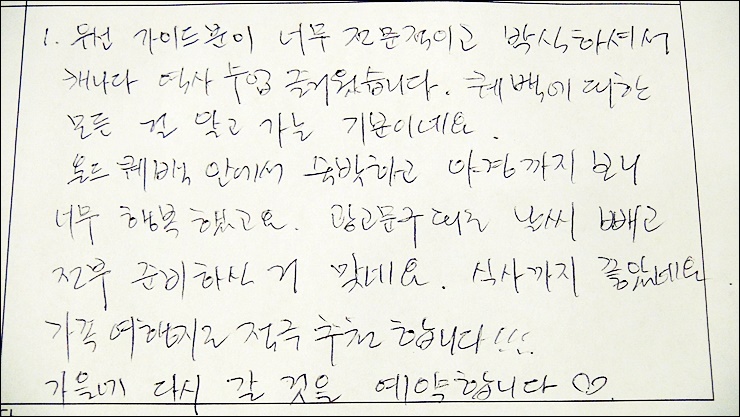 1. 우선 가이드분이 너무 전문적이고 박식하셔서
캐나다 역사 수업 즐거웠습니다. 퀘백에 대한
모든 걸 알고 가는 기분이네요.
올드 퀘백 안에서 숙박하고 야경까지 보니
너무 행복했고요. 광고문구대로 날씨 빼고
전부 준비하신 거 맞네요. 식사까지 꿀맛네요
가족 여행지로 적극 추천 합니다!!!
가을에 다시 갈 것을 예약합니다 ♡.